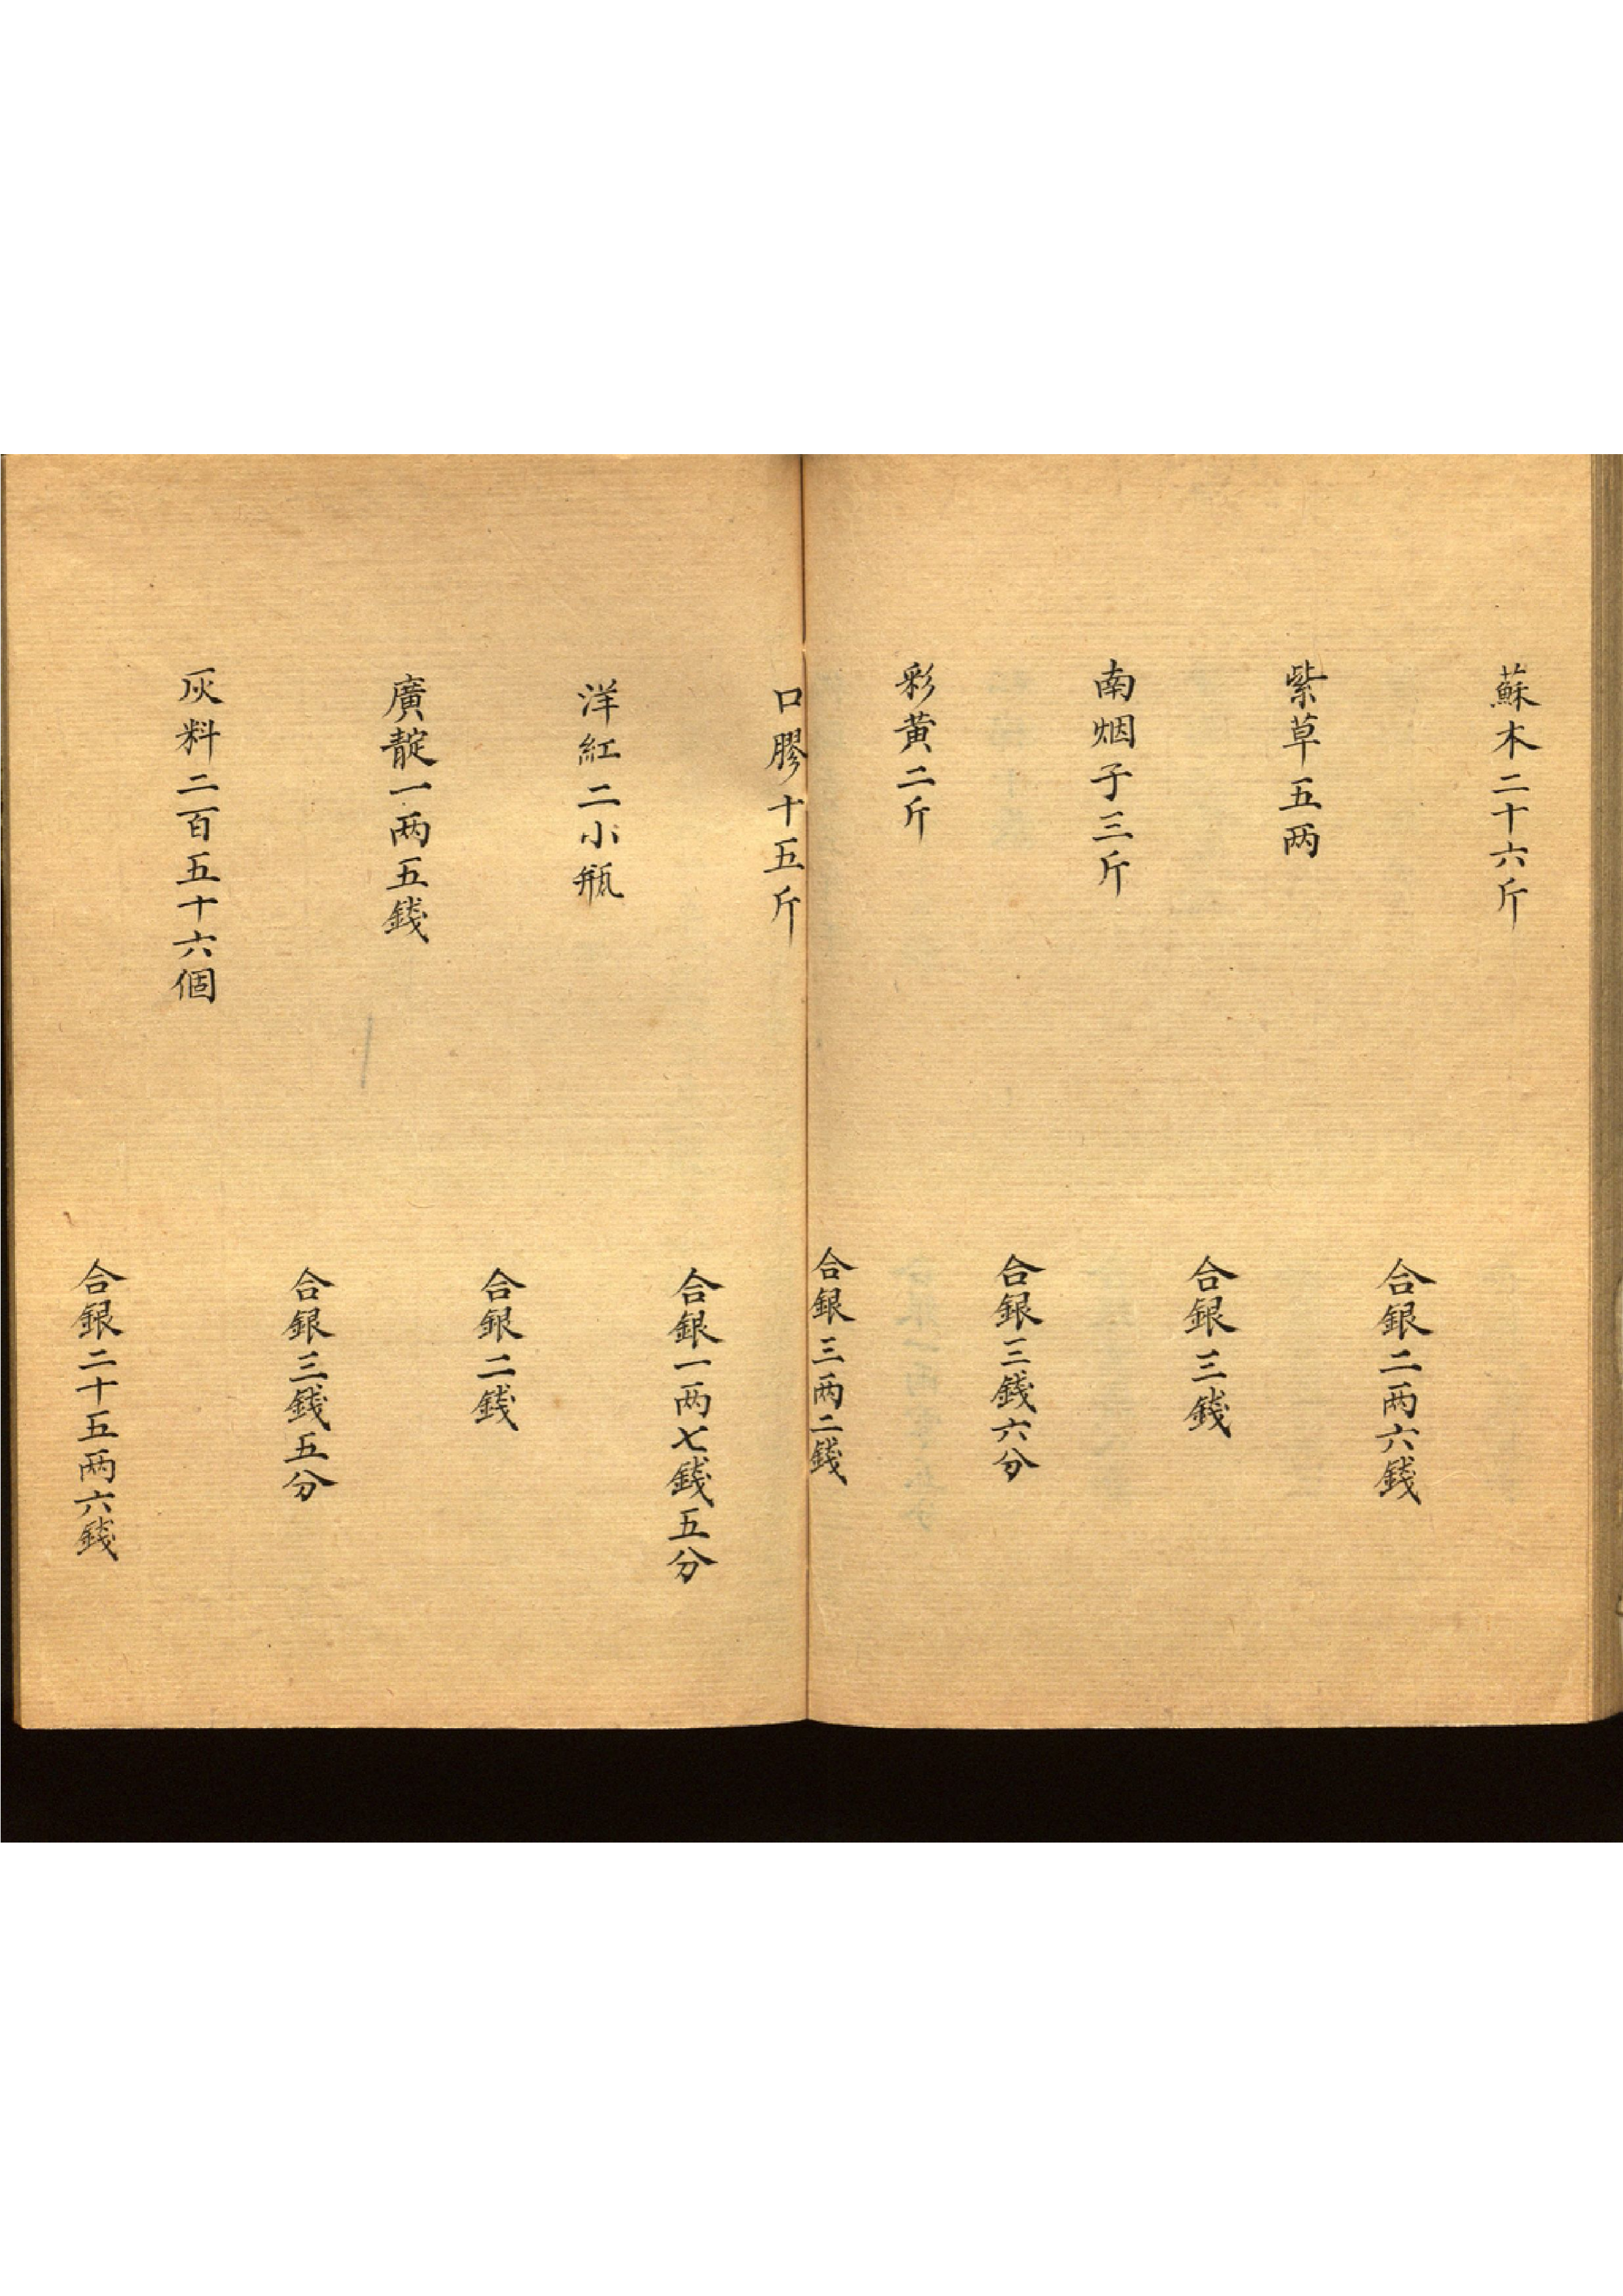 蘇木二十六斤
合銀二两六錢
紫草五两
合銀三錢
南烟子三斤
合銀三錢六分
彩黄二斤
合銀三两二錢
口膠十五斤
合銀一两七錢五分
洋紅二小瓶
合銀二錢
廣靛一两五錢
合銀三錢五分
灰料二百五十六個
合銀二十五两六錢